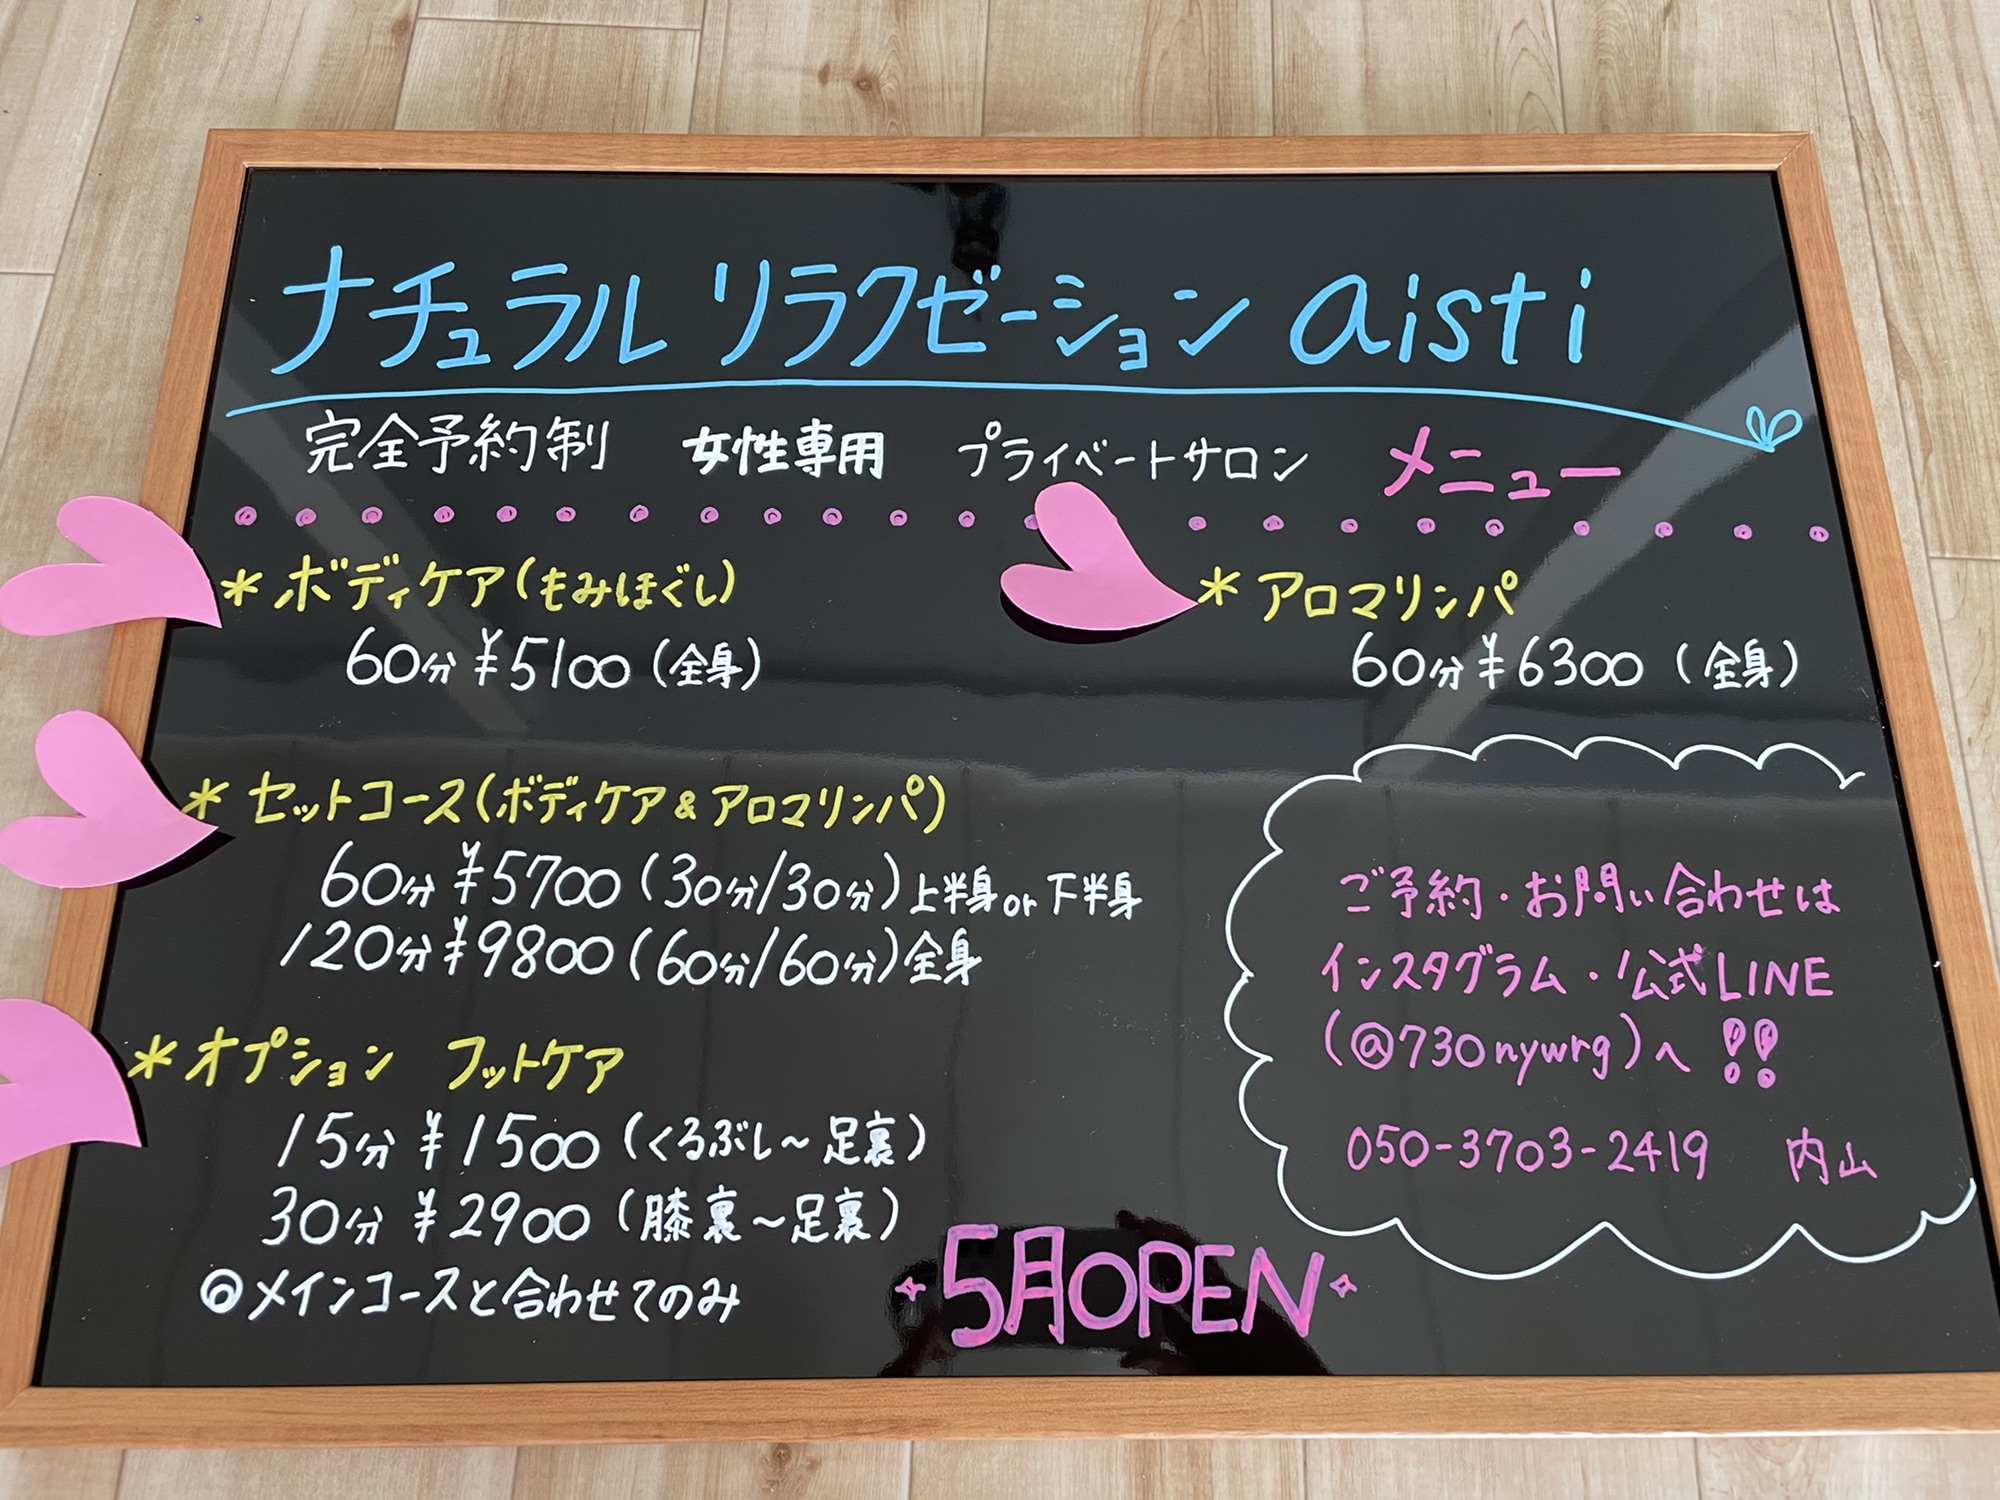 ナチュラル リラクゼーション aisti
完全予約制 女性専用 プライベートサロン メニュー
*ボディケア(もみほぐし)
60分 ¥5100 (全身)
*アロマリンパ
60分 ¥6300 (全身)
*セットコース(ボディケア&アロマリンパ)
60分 ¥5700 (30分/30分) 上半身or下半身
120分 ¥9800 (60分/60分) 全身
*オプション フットケア
15分 ¥1500 (くるぶし~足裏)
30分 ¥2900 (膝裏~足裏)
◎メインコースと合わせてのみ
ご予約・お問い合わせは
インスタグラム・公式LINE
(@730nywrg)へ!!
050-3703-2419 内山
5月OPEN